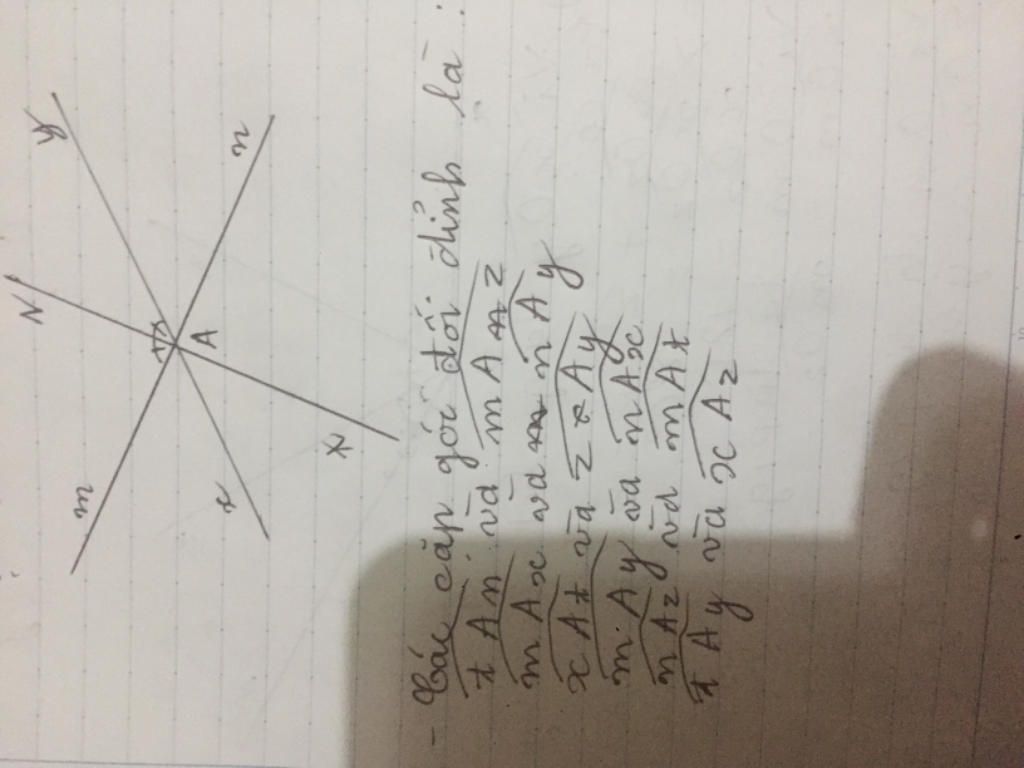 z
y
m
A
x
n
t
- Các cặp góc đối đỉnh là :
t A n và m A z
m A x và n A y
x A t và z A y
m A y và n A x
n A z và m A t
t A y và x A z